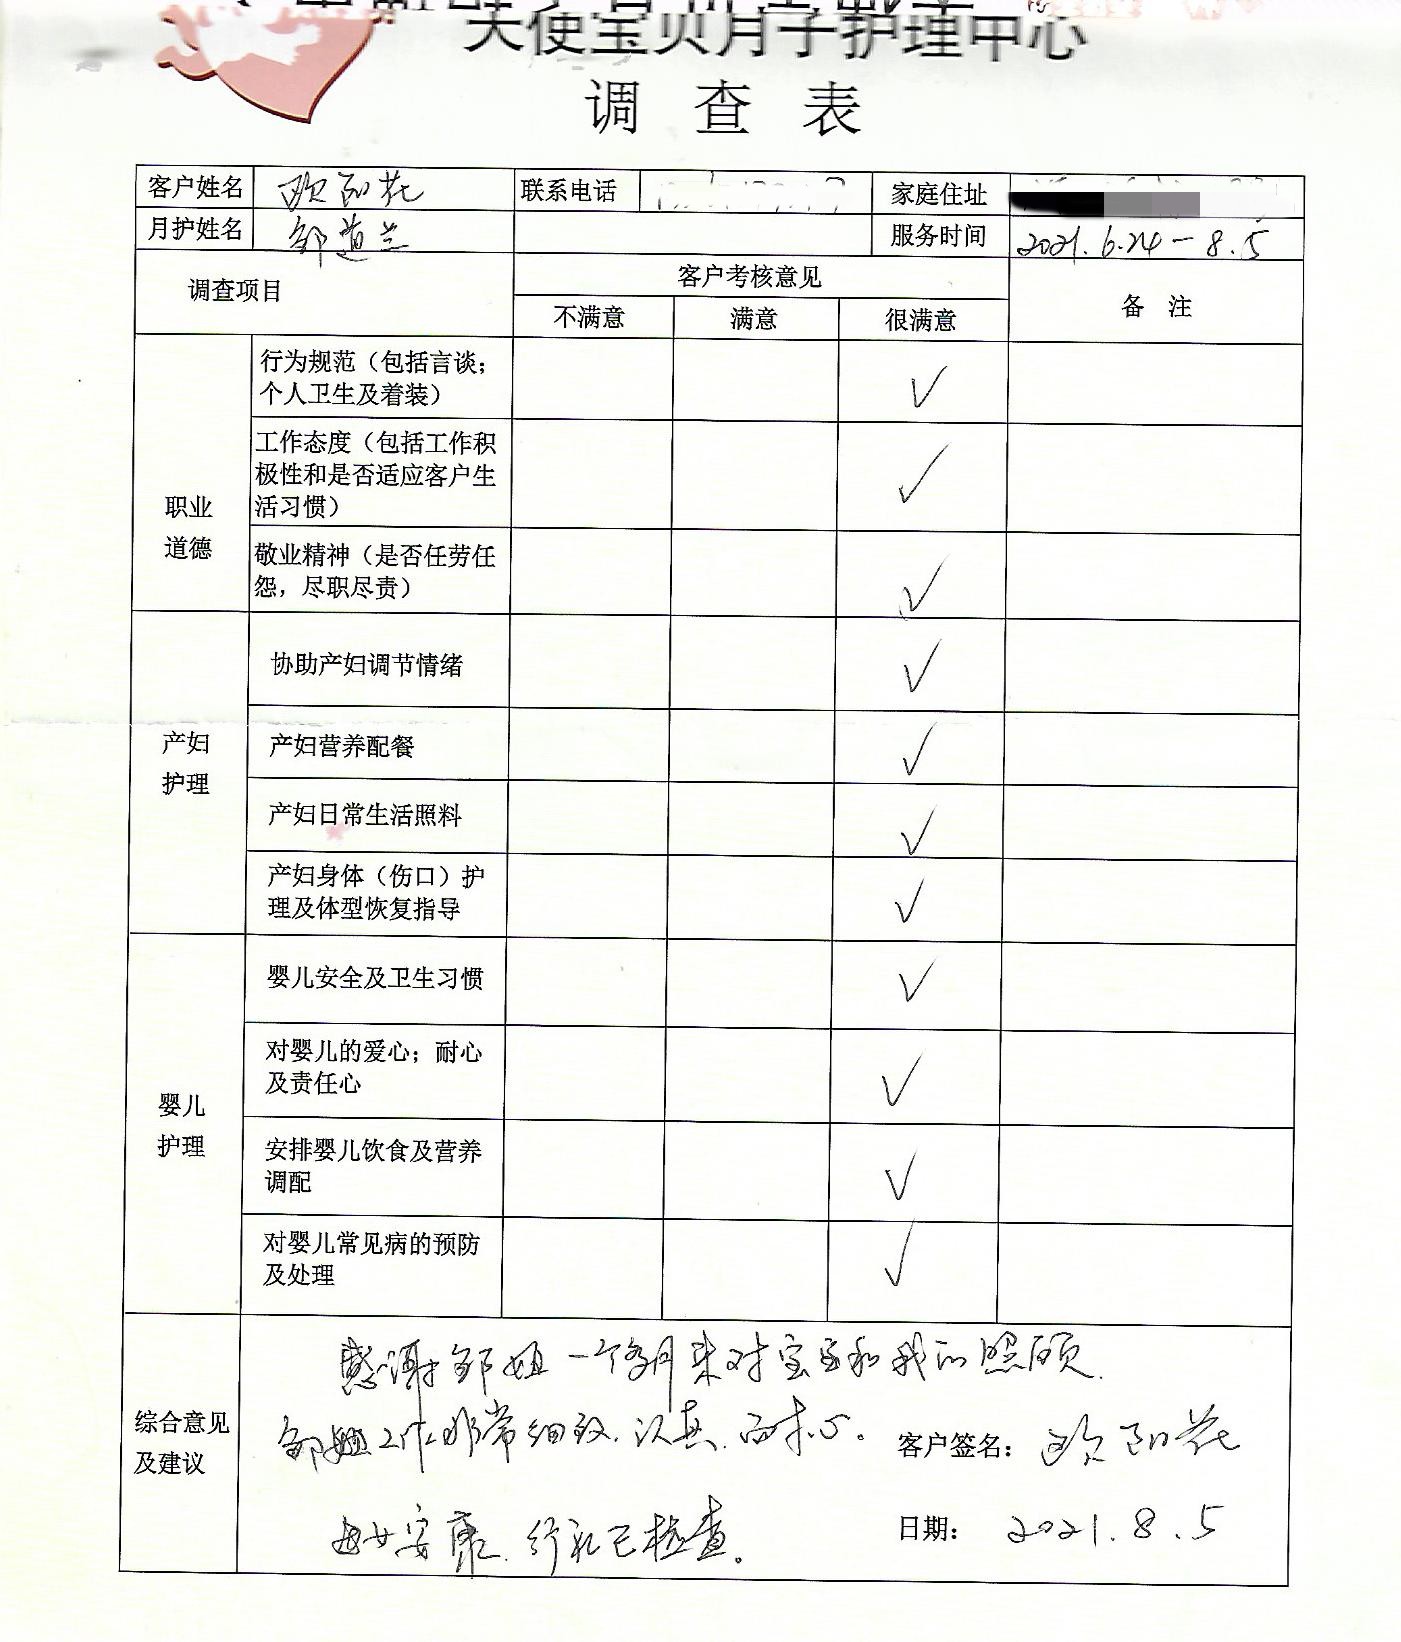 天使宝贝月子护理中心
调 查 表
客户姓名 欧阳花 联系电话 家庭住址
月护姓名 邹道兰 服务时间 2021.6.24-8.5
调查项目 客户考核意见 备 注
不满意 满意 很满意
职业
道德
行为规范（包括言谈；
个人卫生及着装） ✓
工作态度（包括工作积
极性和是否适应客户生
活习惯） ✓
敬业精神（是否任劳任
怨，尽职尽责） ✓
产妇
护理
协助产妇调节情绪 ✓
产妇营养配餐 ✓
产妇日常生活照料 ✓
产妇身体（伤口）护
理及体型恢复指导 ✓
婴儿
护理
婴儿安全及卫生习惯 ✓
对婴儿的爱心；耐心
及责任心 ✓
安排婴儿饮食及营养
调配 ✓
对婴儿常见病的预防
及处理 ✓
综合意见
及建议
感谢邹姐一个多月来对宝宝和我的照顾.
邹姐工作非常细致.认真.耐心。
客户签名：欧阳花
母女安康.行礼已检查。
日期： 2021.8.5